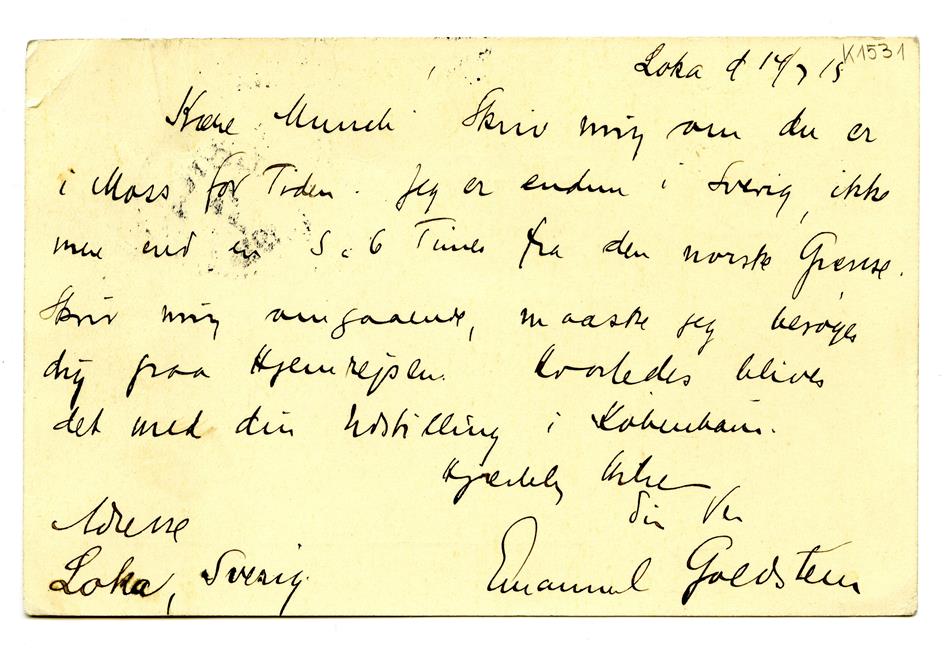 Loka d 14/7 15 K1531
Kære Munch Skriv mig om du er
i Moss for Tiden. Jeg er endnu i Sverig, ikke
mere end en 5 a 6 Timer fra den norske Grænse.
Skriv mig omgaaende, maaske jeg besøger
dig paa Hjemrejsen. Hvorledes bliver
det med din Udstilling i København.
Hjærtelig Hilsen
din Ven
Adresse
Loka, Sverig.
Emanuel Goldstein